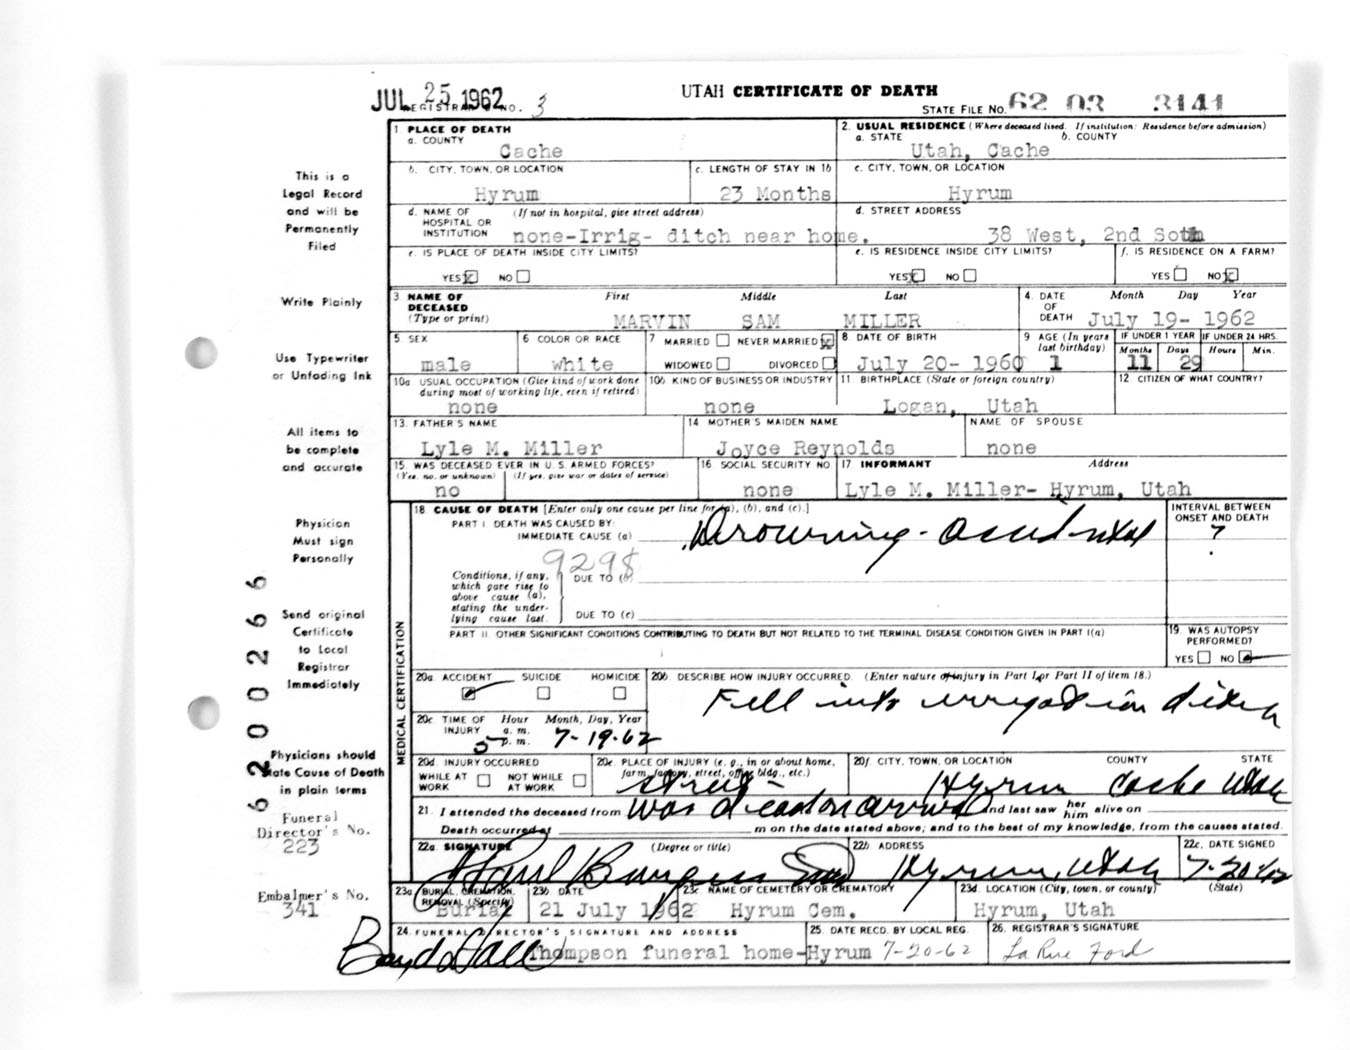 JUL 25 1962
REGISTRAR'S NO. 3
UTAH CERTIFICATE OF DEATH
STATE FILE NO. 62 03 3141
This is a
Legal Record
and will be
Permanently
Filed
Write Plainly
Use Typewriter
or Unfading Ink
All items to
be complete
and accurate
Physician
Must sign
Personally
Send original
Certificate
to Local
Registrar
Immediately
Physicians should
state Cause of Death
in plain terms
Funeral
Director's No.
223
Embalmer's No.
341
6200266
1. PLACE OF DEATH
a. COUNTY
Cache
2. USUAL RESIDENCE (Where deceased lived. If institution: Residence before admission)
a. STATE b. COUNTY
Utah, Cache
b. CITY, TOWN, OR LOCATION
Hyrum
c. LENGTH OF STAY IN 1b
23 Months
c. CITY, TOWN, OR LOCATION
Hyrum
d. NAME OF HOSPITAL OR INSTITUTION (If not in hospital, give street address)
none-Irrig- ditch near home.
d. STREET ADDRESS
38 West, 2nd South
e. IS PLACE OF DEATH INSIDE CITY LIMITS?
YES x NO
e. IS RESIDENCE INSIDE CITY LIMITS?
YES x NO
f. IS RESIDENCE ON A FARM?
YES NO x
3. NAME OF DECEASED (Type or print)
First Middle Last
MARVIN SAM MILLER
4. DATE OF DEATH Month Day Year
July 19- 1962
5 SEX
male
6 COLOR OR RACE
white
7 MARRIED NEVER MARRIED x
WIDOWED DIVORCED
8. DATE OF BIRTH
July 20- 1960
9 AGE (In years last birthday)
1
IF UNDER 1 YEAR IF UNDER 24 HRS.
Months Days Hours Min.
11 29
10a USUAL OCCUPATION (Give kind of work done during most of working life, even if retired)
none
10b KIND OF BUSINESS OR INDUSTRY
none
11 BIRTHPLACE (State or foreign country)
Logan, Utah
12. CITIZEN OF WHAT COUNTRY?
13. FATHER'S NAME
Lyle M. Miller
14 MOTHER'S MAIDEN NAME
Joyce Reynolds
NAME OF SPOUSE
none
15. WAS DECEASED EVER IN U.S. ARMED FORCES?
(Yes, no, or unknown) (If yes, give war or dates of service)
no
16 SOCIAL SECURITY NO.
none
17 INFORMANT Address
Lyle M. Miller- Hyrum, Utah
MEDICAL CERTIFICATION
18. CAUSE OF DEATH [Enter only one cause per line for (a), (b), and (c).]
PART I. DEATH WAS CAUSED BY:
IMMEDIATE CAUSE (a) Drowning - accidental
INTERVAL BETWEEN ONSET AND DEATH
?
9298
Conditions, if any, which gave rise to above cause (a), stating the underlying cause last.
DUE TO (b)
DUE TO (c)
PART II. OTHER SIGNIFICANT CONDITIONS CONTRIBUTING TO DEATH BUT NOT RELATED TO THE TERMINAL DISEASE CONDITION GIVEN IN PART I(a)
19. WAS AUTOPSY PERFORMED?
YES NO
20a. ACCIDENT SUICIDE HOMICIDE
20b DESCRIBE HOW INJURY OCCURRED. (Enter nature of injury in Part I or Part II of item 18.)
Fell into irrigation ditch
20c TIME OF INJURY Hour Month, Day, Year
a. m.
5 p. m. 7-19-62
20d. INJURY OCCURRED
WHILE AT WORK NOT WHILE AT WORK
20e. PLACE OF INJURY (e. g., in or about home, farm, factory, street, office bldg., etc.)
street -
20f. CITY, TOWN, OR LOCATION COUNTY STATE
Hyrum Cache Utah
21. I attended the deceased from was dead on arrival and last saw her him alive on
Death occurred at m on the date stated above; and to the best of my knowledge, from the causes stated.
22a. SIGNATURE (Degree or title)
22b ADDRESS
Hyrum, Utah
22c. DATE SIGNED
7-20-62
23a BURIAL, CREMATION, REMOVAL (Specify)
Burial
23b. DATE
21 July 1962
23c NAME OF CEMETERY OR CREMATORY
Hyrum Cem.
23d. LOCATION (City, town, or county) (State)
Hyrum, Utah
24. FUNERAL DIRECTOR'S SIGNATURE AND ADDRESS
Boyd Hall Thompson funeral home-Hyrum
25. DATE RECD. BY LOCAL REG.
7-20-62
26. REGISTRAR'S SIGNATURE
LaRue Ford